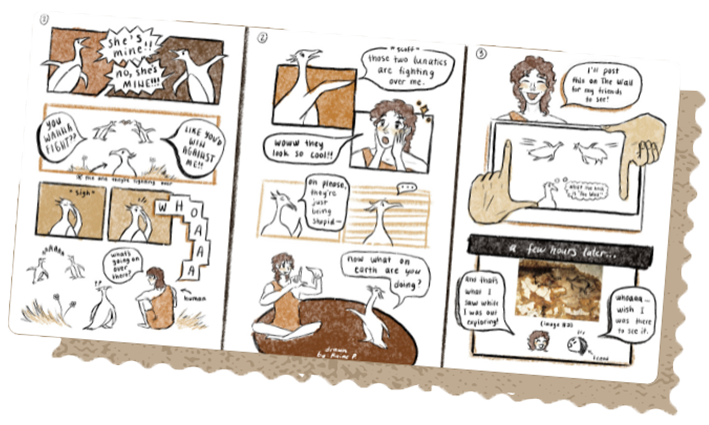 ①
she's
mine!!
no, she's
MINE!!!
YOU
WANNA
FIGHT??
LIKE YOU'D
WIN
AGAINST
ME!!
*sigh*
WHOAAA
AAAAA
what's
going on
over
there?
??
human
②
*scoff*
those two lunatics
are fighting
over me.
woww they
look so cool!!
oh please,
they're
just
being
stupid—
...
now what on
earth are you
doing?
drawn
by
③
I'll post
this on The Wall
for my friends
to see!
what the heck
is "The Wall"
a few hours later...
and that's
what I
saw while
I was out
exploring!
whoaaa—
wish I
was there
to see it.
friend